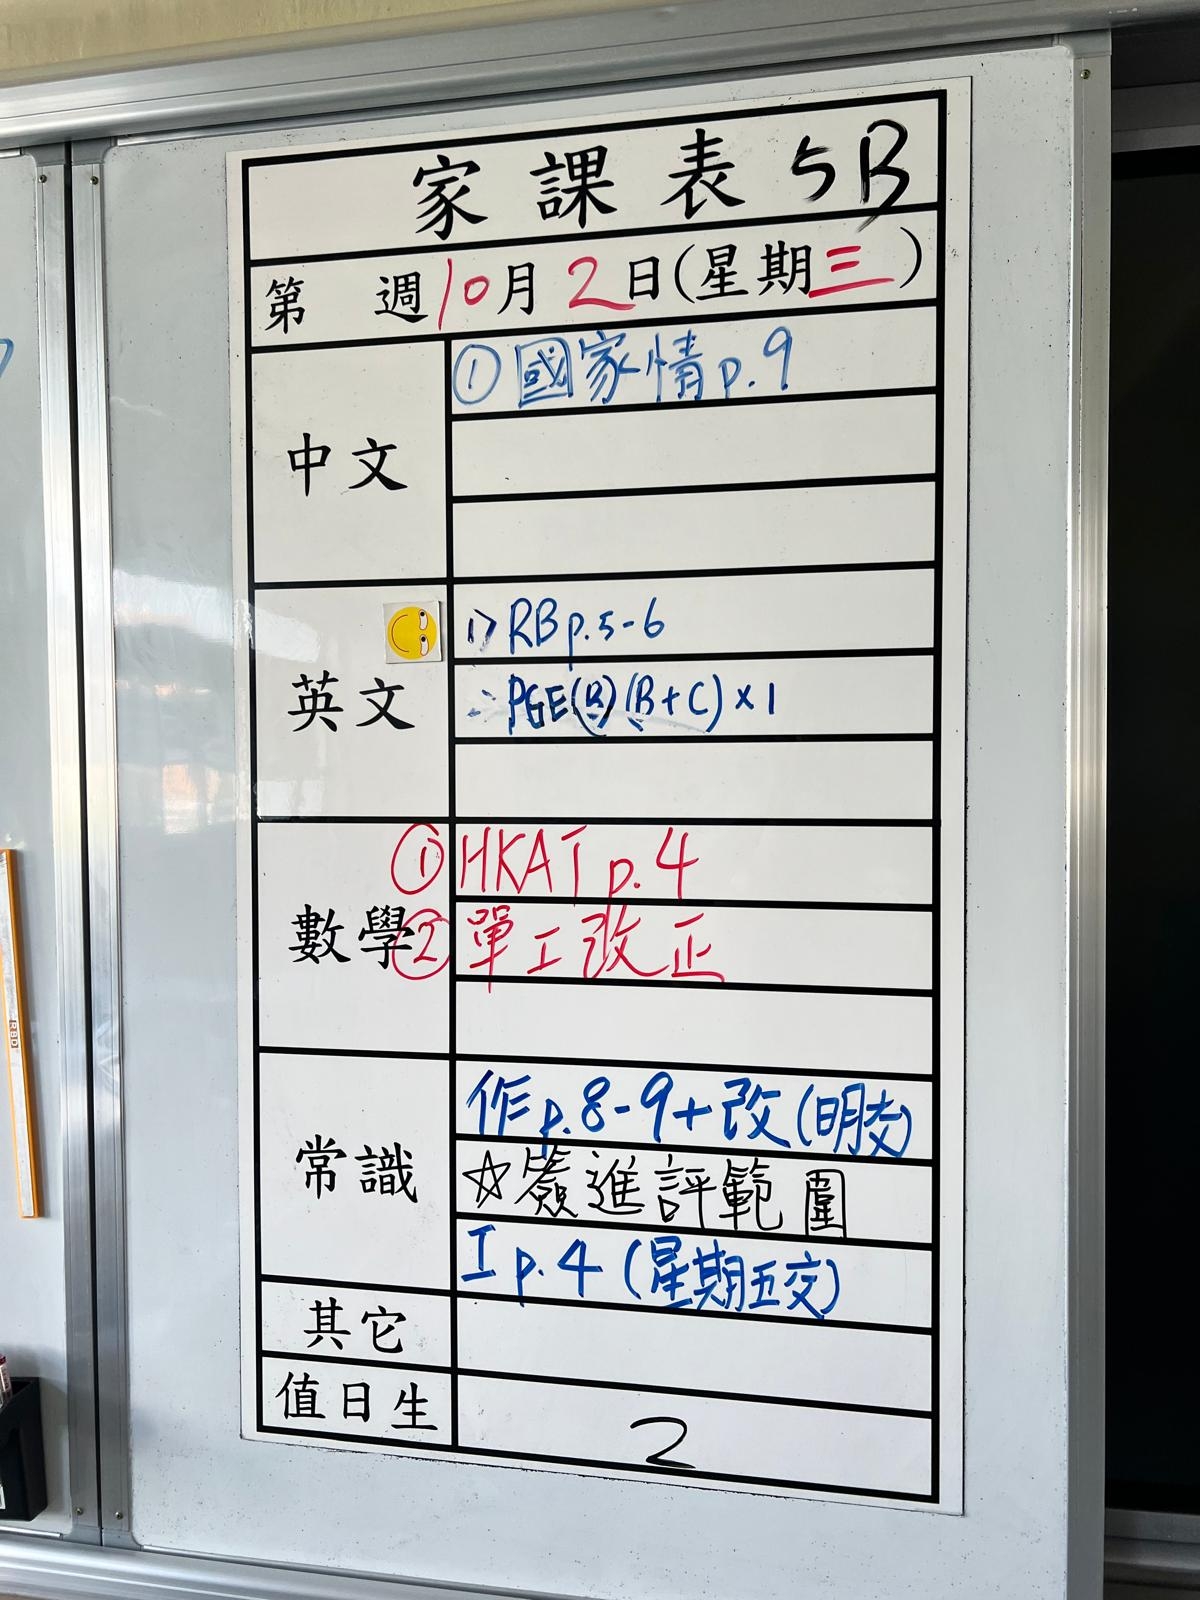 家課表 5B
第 週 10月2日(星期三)
中文
① 國家情 p.9
英文
1> RB p.5-6
PGE(B) (B+C) x 1
數學
① HKAT p.4
② 單工改正
常識
作 p.8-9+改 (明交)
☆簽進評範圍
工 p.4 (星期五交)
其它
值日生
2
RBD